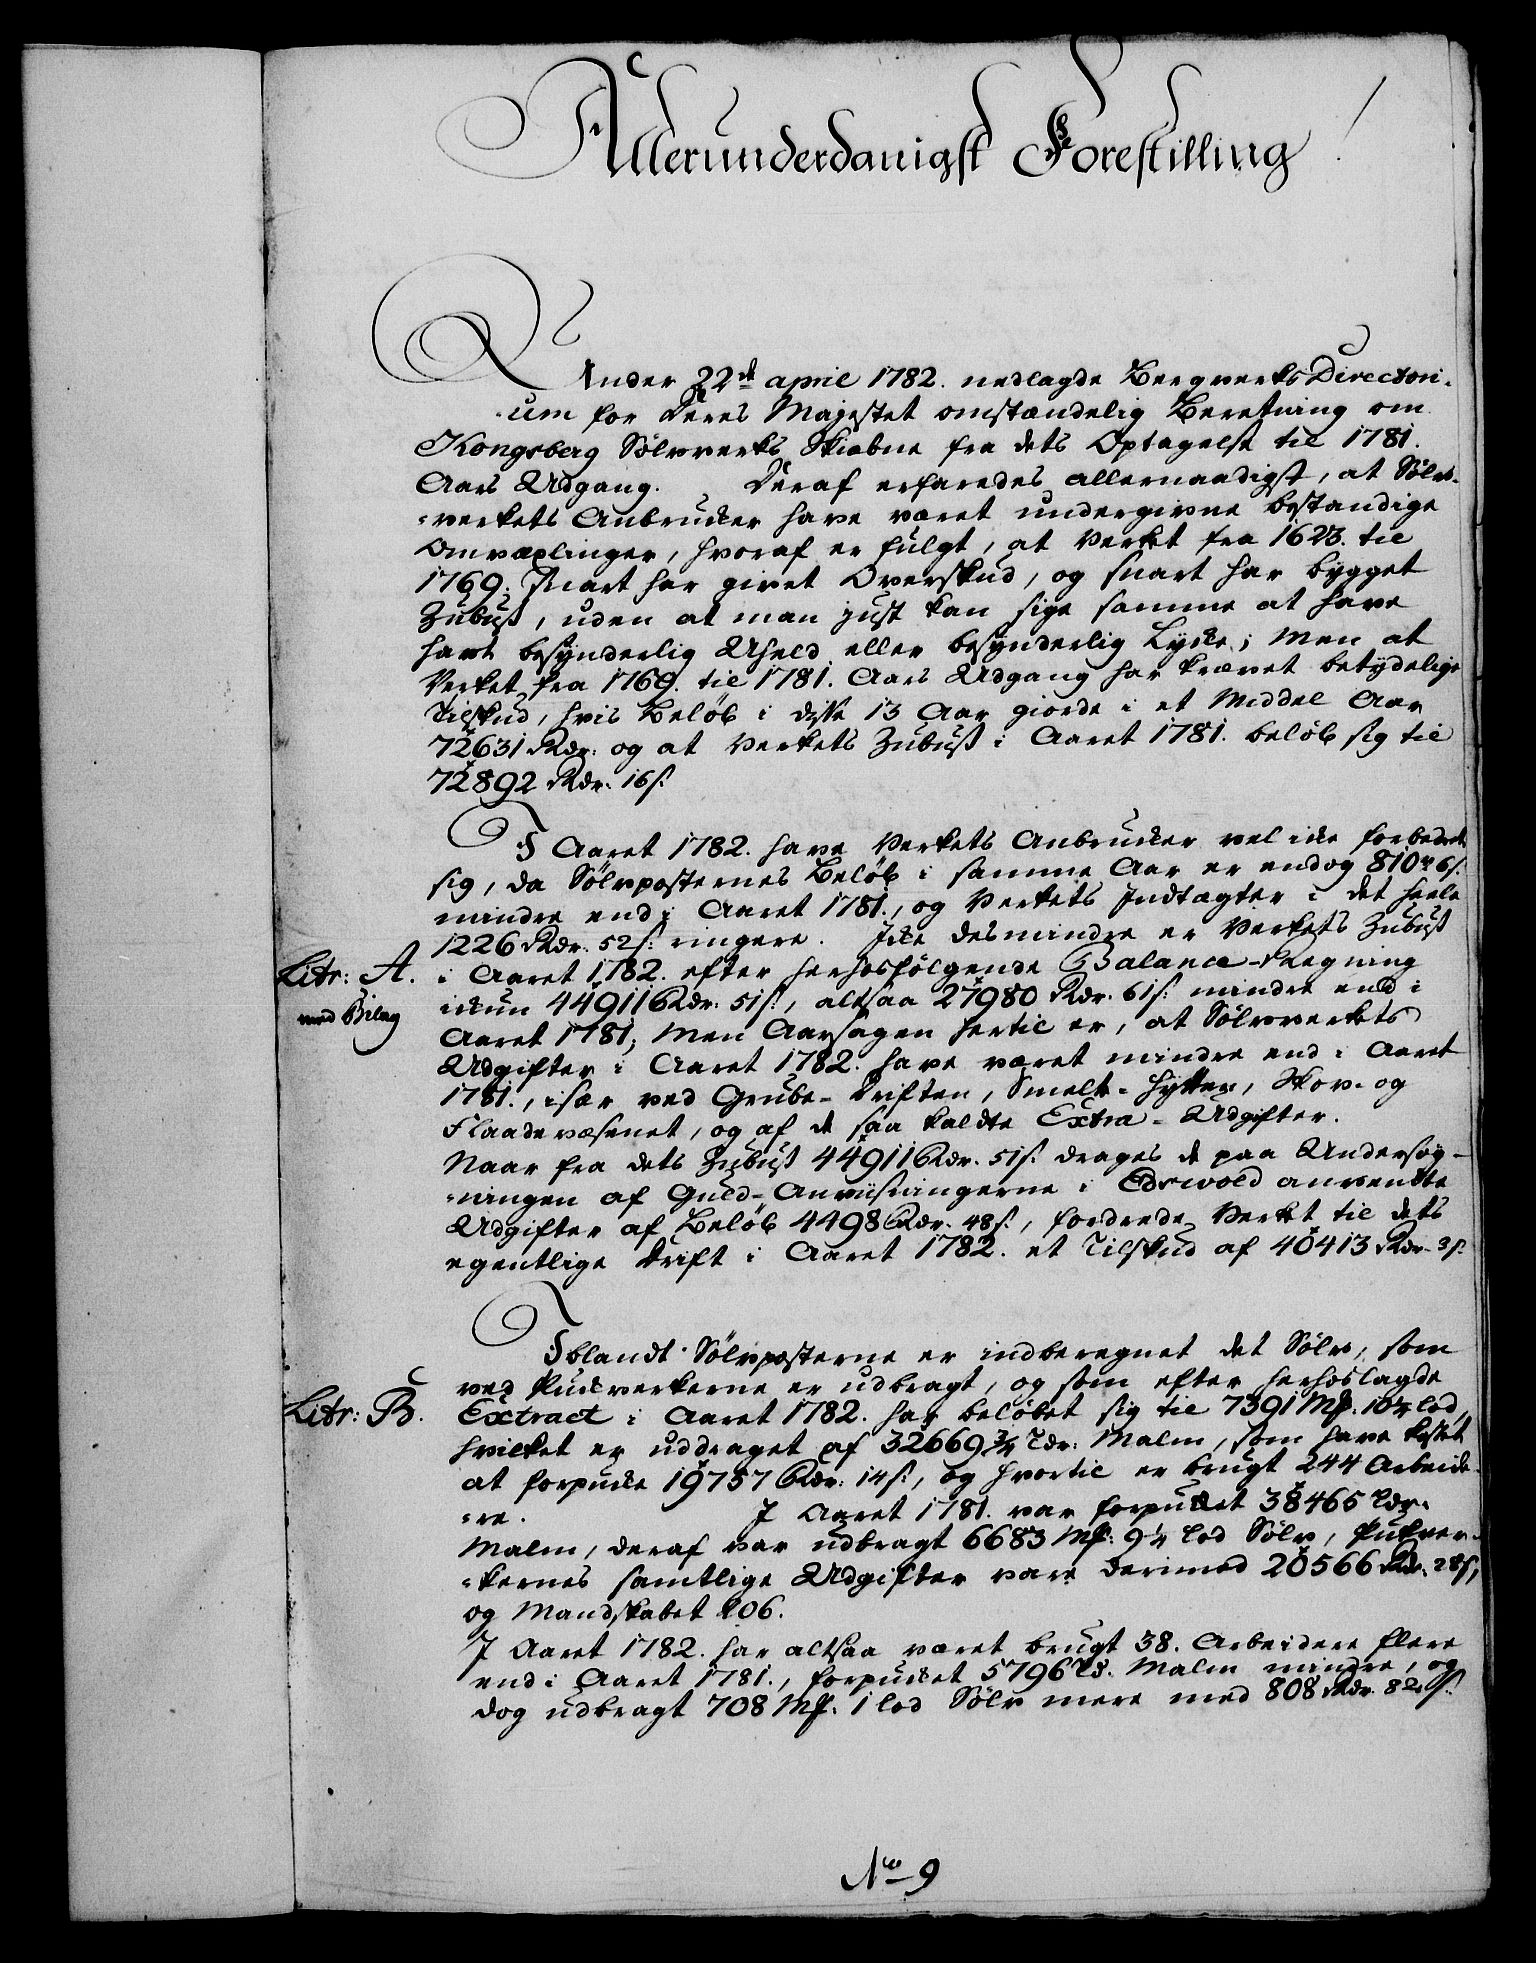 Allerunderdanigst Forestilling!
Under 22de april 1782. nedlagde Bergverks Directori-
-um for Deres Majestet omstændelig Beretning om
Kongsberg Sølvverks Skiæbne fra dets Optagelse til 1781.
Aars Udgang. Deraf erfaredes allernaadigst, at Sølv-
-verkets Anbrudder have været undergivne bestandige
Omvæxlinger, hvoraf er fulgt, at Verket fra 1623. til
1769. snart har givet Overskud, og snart har bygget
Zubuß, uden at man just kan sige samme at have
havt besynderlig Uheld eller besynderlig Lykke; Men at
Verket fra 1769. til 1781. Aars Udgang har krævet betydelige
Tilskud, hvis Beløb i disse 13 Aar giorde i et Middel Aar
72631 Rdr. og at Verkets Zubuß i Aaret 1781. beløb sig til
72892 Rdr. 16 s.
I Aaret 1782. have Verkets Anbrudder vel ikke forbedret
sig, da Sølvposternes Beløb i samme Aar er endog 810 r 6 s.
mindre end i Aaret 1781., og Verkets Indtægter i det heele
1226 Rdr. 52 s. ringere. Ikke desmindre er Verkets Zubuß
Litr: A. i Aaret 1782. efter herhosfølgende Balance-Regning
med Bilag ikkun 44911 Rdr. 51 s., altsaa 27980 Rdr. 61 s. mindre end i
Aaret 1781; Men Aarsagen hertil er, at Sølvverkets
Udgifter i Aaret 1782. have været mindre end i Aaret
1781., især ved Grube-Driften, Smelt-Hytten, Skov- og
Flaadevæsenet, og af de saa kaldte Extra-Udgifter.
Naar fra dets Zubuß 44911 Rdr. 51 s. drages de paa Undersøg-
-ningen af Guld-Anviisningerne i Edswold anvendte
Udgifter af Beløb 4498 Rdr. 48 s., fordrede Verket til dets
egentlige Drift i Aaret 1782. et Tilskud af 40413 Rdr. 3 s.
Iblandt Sølvposterne er indberegnet det Sølv, som
ved Pukverkerne er udbragt, og som efter herhoslagde
Litr: B. Extract i Aaret 1782. har beløbet sig til 7391 Mk. 10½ lod,
hvilket er uddraget af 32669¾ Tdr. Malm, som have kostet
at forpukke 19757 Rdr. 14 s., og hvortil er brugt 244 Arbeide-
-re. I Aaret 1781. var forpukket 38465 Tdr.
Malm, deraf var udbragt 6683 Mk. 9½ lod Sølv, Pukver-
-kernes samtlige Udgifter vare derimod 20566 Rdr. 28 s,
og Mandskabet 206.
I Aaret 1782. har altsaa været brugt 38. Arbeidere flere
end i Aaret 1781., forpukket 5796 Td. Malm mindre, og
dog udbragt 708 Mk. 1 lod Sølv mere med 808 Rdr.
No 9